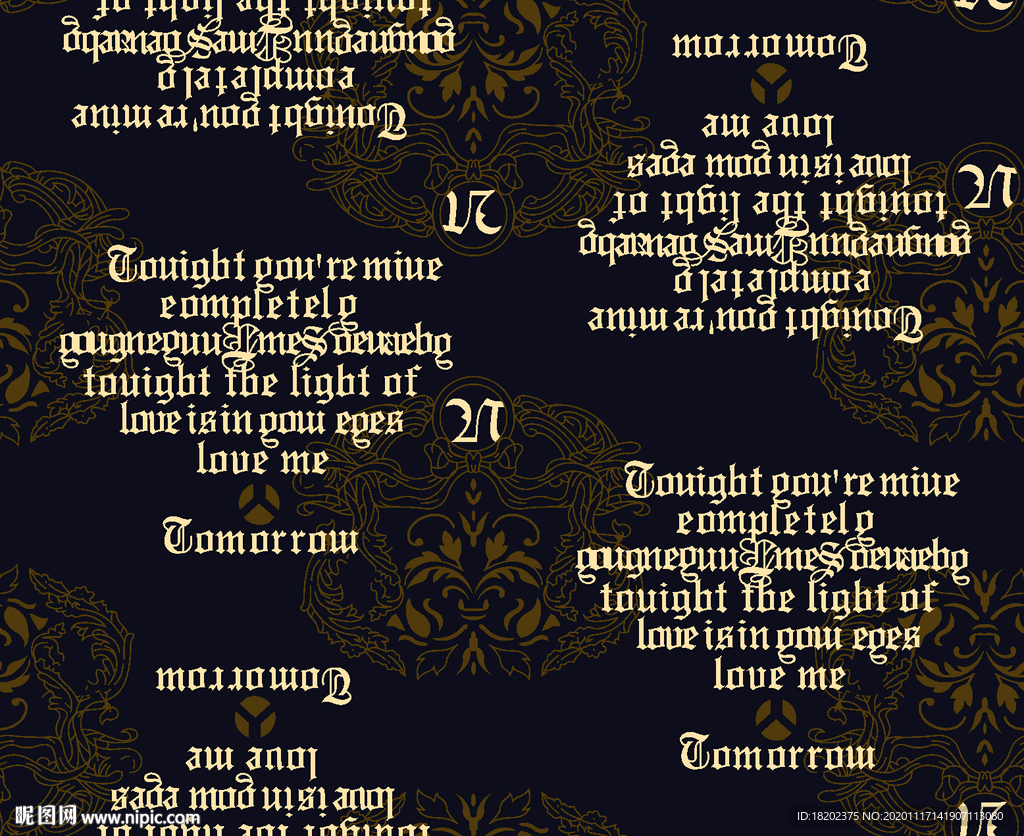 Tonight you're mine
completely
tonight the light of
Tonight you're mine
completely
tonight the light of
love is in your eyes
love me
Tomorrow
N
N
Tonight you're mine
completely
tonight the light of
love is in your eyes
love me
Tomorrow
N
Tonight you're mine
completely
tonight the light of
love is in your eyes
love me
Tomorrow
love is in your eyes
love me
Tomorrow
昵图网 www.nipic.com
ID:18202375 NO:20201117141907113080